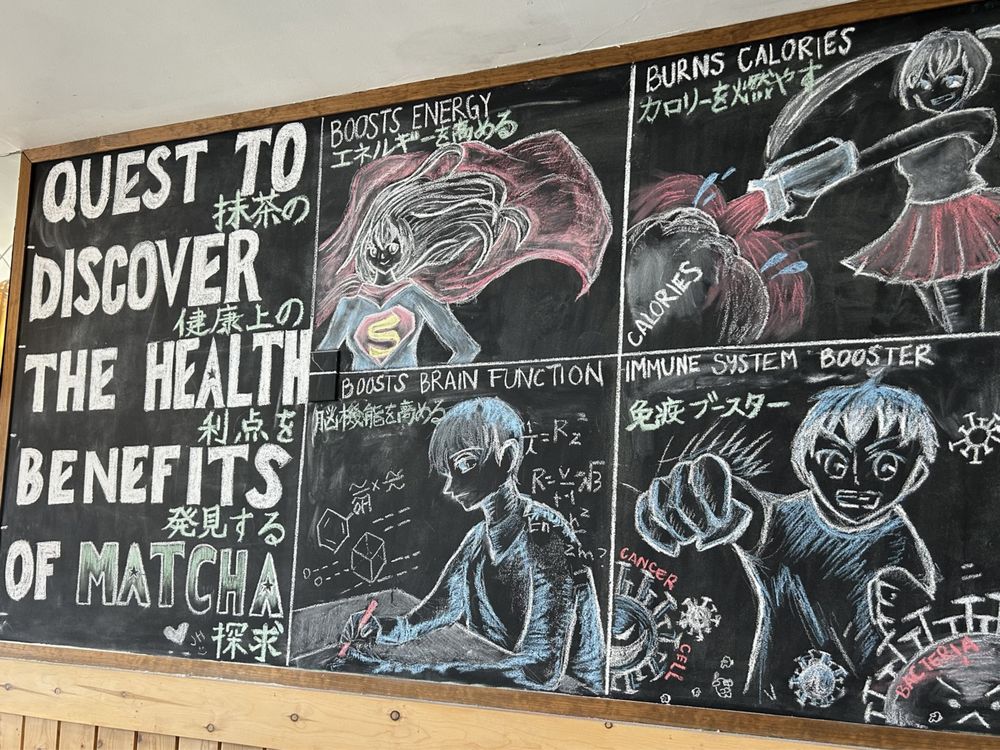 QUEST TO
抹茶の
DISCOVER
健康上の
THE HEALTH
利点を
BENEFITS
発見する
OF MATCHA
JH
探求
BOOSTS ENERGY
エネルギーを高める
S
BURNS CALORIES
カロリーを燃やす
CALORIES
BOOSTS BRAIN FUNCTION
脳機能を高める
OH
IMMUNE SYSTEM BOOSTER
免疫ブースター
CANCER
CELL
BACTERIA